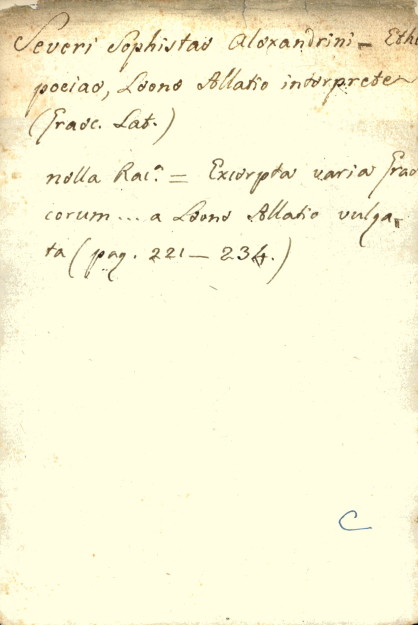 Severi Sophistae Alexandrini - Ethо
poeiae, Leone Allatio interprete
(Graec. Lat.)
nella Rac.ª = Excerpta varia Grae
corum ... a Leone Allatio vulga„
ta (pag. 221 - 234.)
C